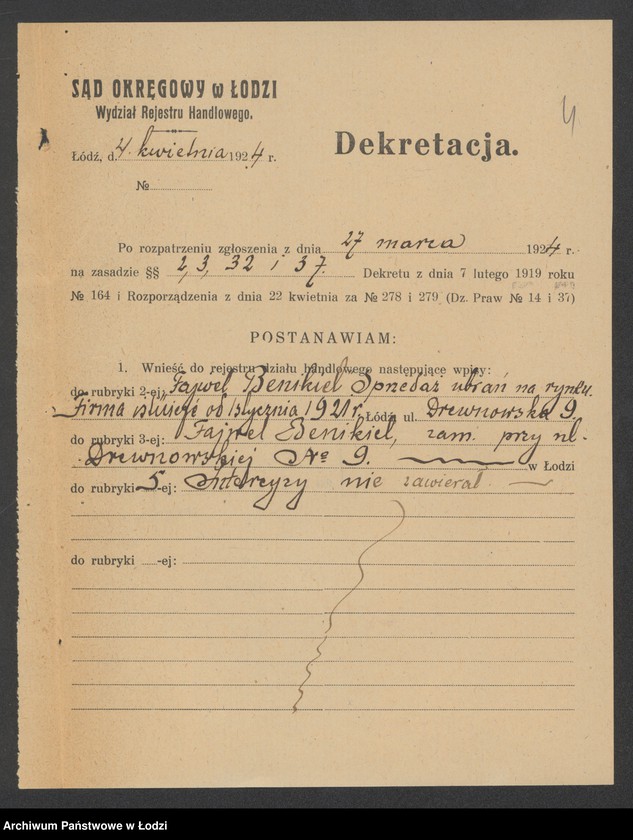 SĄD OKRĘGOWY w ŁODZI
Wydział Rejestru Handlowego.
4
Łódź, d. 4. kwietnia 1924 r.
Dekretacja.
№
Po rozpatrzeniu zgłoszenia z dnia 27 marca 1924 r.
na zasadzie §§ 2, 3, 32 i 37. Dekretu z dnia 7 lutego 1919 roku
№ 164 i Rozporządzenia z dnia 22 kwietnia za № 278 i 279 (Dz. Praw № 14 i 37)
POSTANAWIAM:
1. Wnieść do rejestru działu handlowego następujące wpisy:
do rubryki 2-ej: Fajwel Benikiel Sprzedaż ubrań na rynku.
Firma istnieje od 1 stycznia 1921 r. Łódź, ul. Drewnowska 9.
do rubryki 3-ej: Fajwel Benikiel, zam. przy ul.
Drewnowskiej № 9. w Łodzi
do rubryki 5-ej: Intercyzy nie zawierał
do rubryki -ej:
Archiwum Państwowe w Łodzi